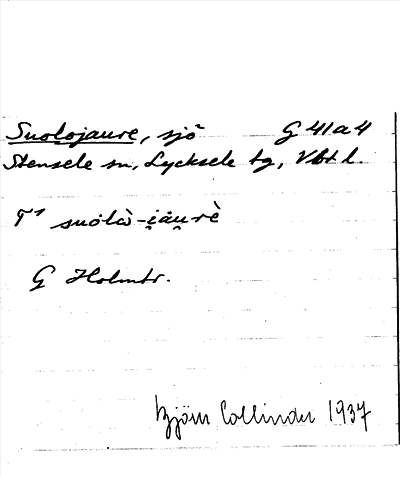 Suolojaure, sjö G 41 a 4
Stensele sn, Lycksele tg, Vbt l.
T¹ suolà-i̯āu̯rè
G Holmtr.
Björn Collinder 1937